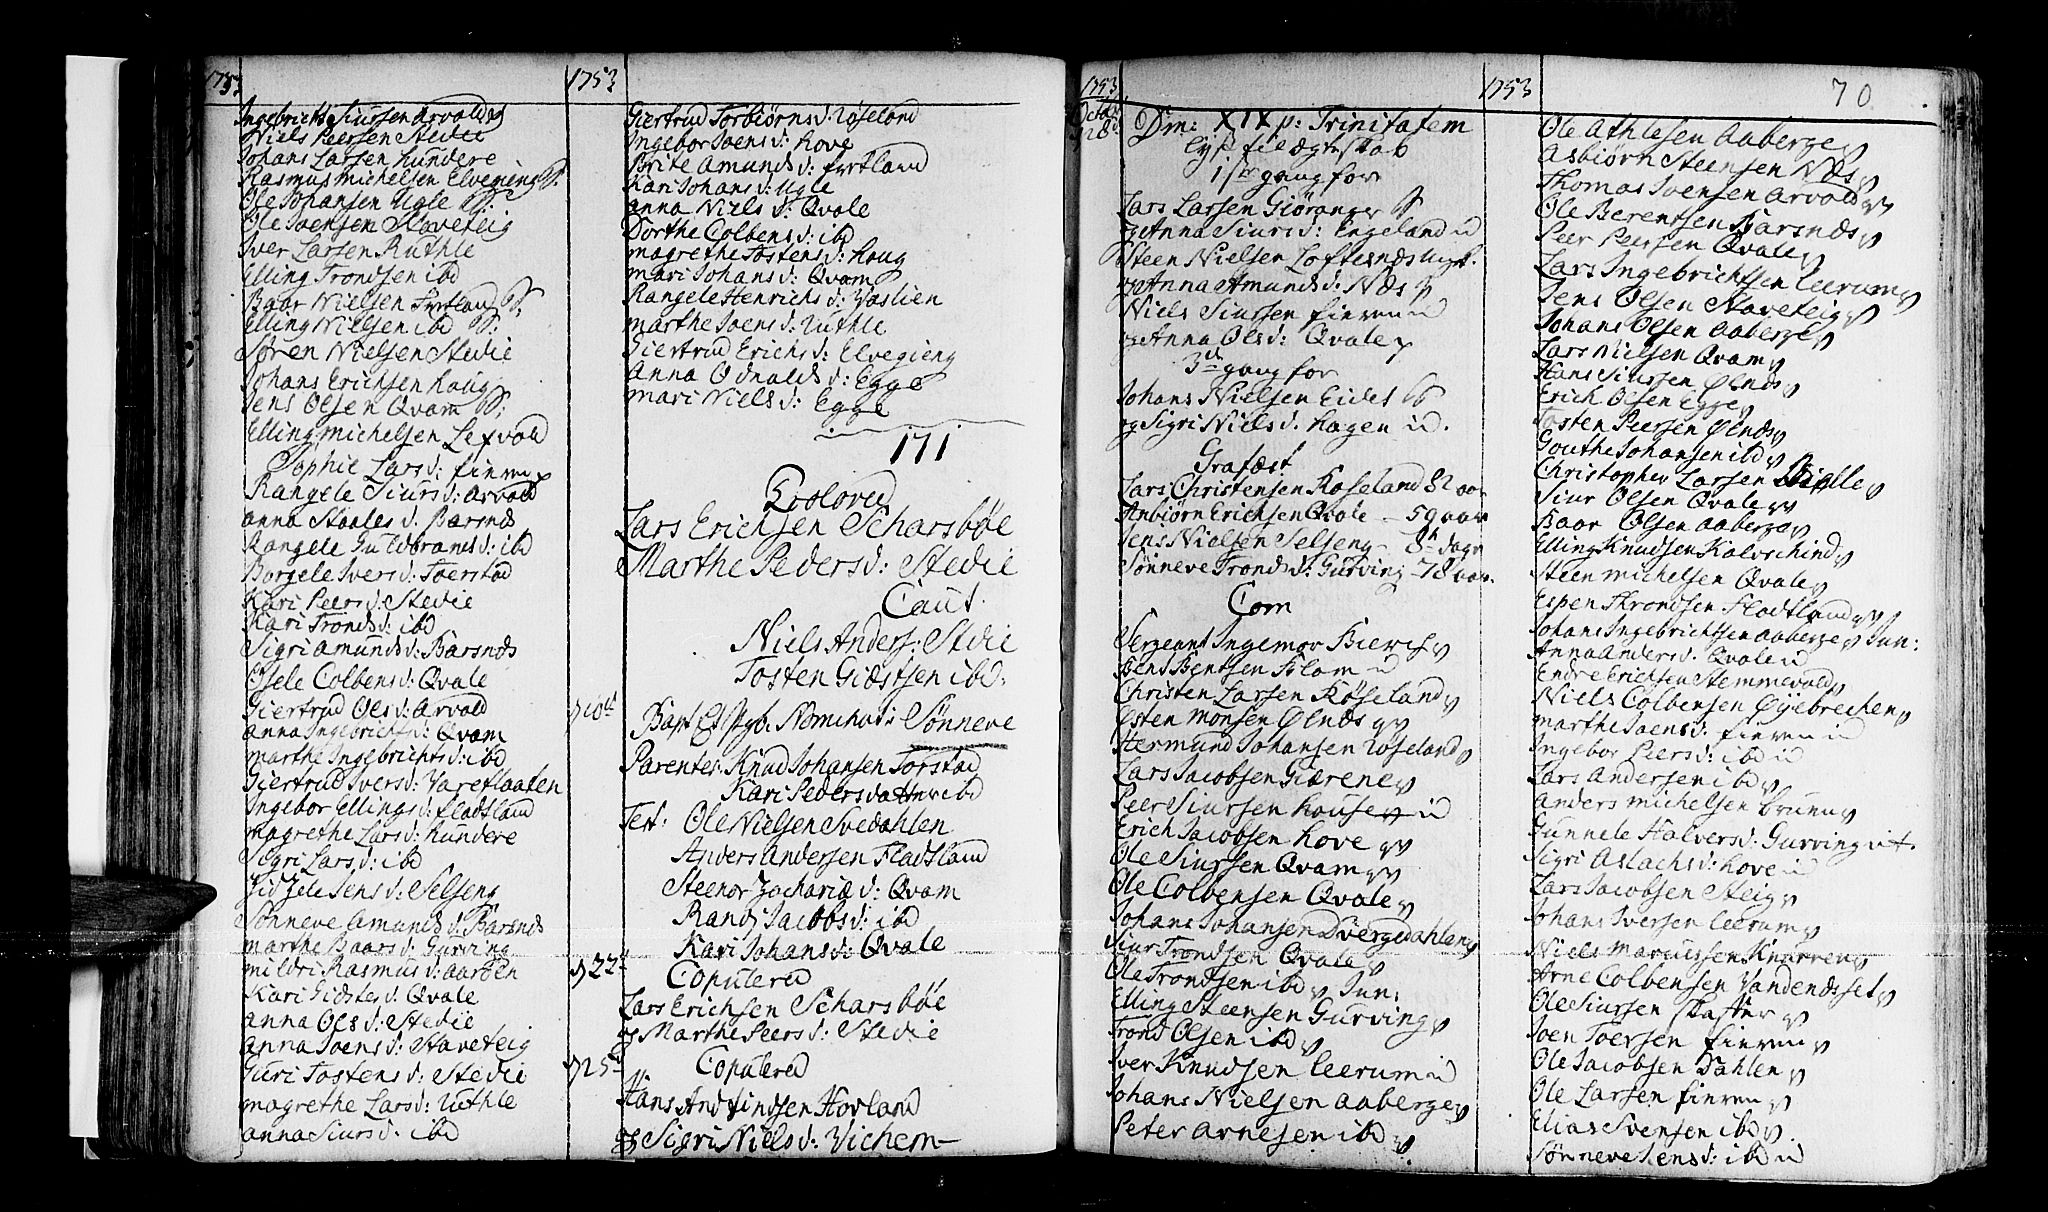 1753
Ingebricht Siursen Arvald
Niels Peersen Stedie
Johans Larsen Hundere
Rasmus Michelsen Elvegieng S.
Ole Johansen Ugle S:
Ole Joensen Stoveteig
Iver Larsen Ruthle
Elling Trondsen ibd
Baar Nielsen Fretland S:
Elling Nielsen ibd S:
Søren Nielsen Stedie
Johans Erichsen Haug
Jens Olsen Qvam S:
Elling Michelsen Lexvold
Sophie Lars d: Finren
Rangele Siurs d: Arvald
Anna Staales d. Barsnds
Rangele Guldbrands d: ibd
Borgele Ivers d: Toerstad
Kari Peers d: Stedie
Kari Tronds d: ibd
Sigri Amunds d: Barsnds
Osele Colbens d: Qvale
Giertrud Ols d: Arvald
Anna Ingebrichts d: Qvam
Marthe Ingebrichts d: ibd
Giertrud Ivers d: Vareflaaten
Ingebor Ellings d: Fladtland
Magrethe Lars d: Hundere
Sigri Lars d: ibd
Jens d: Selseng
Sønneve Amunds d: Barsnds
Marthe Baars d: Gurving
Mildri Rasmus d: Aarøen
Kari Giæstes d: Qvale
Anna Ols d: Stedie
Anna Joens d: Staveteig
Guri Tostens d: Stedie
Magrethe Lars d: Ruthle
Anna Siurs d: ibd
1753
Giertrud Torbiørns d: Røseland
Ingebor Joens d: Hove
Brite Amunds d: Frætland
Kari Johans d: Ugle
Anna Niels d: Qvale
Dorthe Colbens d: ibd
Magrethe Tostens d: Haug
Mari Johans d: Qvam
Rangele Henrichs d: Vaslien
Marthe Joens d: Ruthle
Giertrud Erichs d: Elvegieng
Anna Odnalds d: Egge
Mari Niels d: Egge
171
Troloved
Lars Erichsen Scharsbøe
Marthe Peders d: Stedie
Caut.
Niels Anders: Stedie
Tosten Giæstsen ibd:
Bapt Et Pgb. Nominati Sønneve
Parentes Knud Johansen Torstad
Kari Peders datter ibd
Test: Ole Nielsen Svedahlen
Anders Andersen Fladtland
Steenor Zachariæ d: Qvam
Randi Jacobs d: ibd
Kari Johans d: Qvale
d 22 Copulered
Lars Erichsen Scharsbøe
og Marthe Peers d: Stedie
d 25 Copulered
Hans Andfindsen Hovland
og Sigri Niels d: Vichem
1753
Octobr
d 28
Dm: XIX p: Trinitatem
Lyst til Ægteskab
1ste gang for
Lars Larsen Giøranger S
og Anna Siurs d: Engeland u
Steen Nielsen Loftesnds ugt.
og Anna Amunds d: Næs
Niels Siursen Finren u
og Anna Ols d: Qvale
3de gang for
Johans Nielsen Eidet S
og Sigri Niels d. Hagen u.
Grafæst
Lars Christensen Røseland 82 aar
Anbiørn Erichsen Qvale 59 aar
Jens Nielsen Selseng 8t dage
Sønneve Tronds d: Gurving 78 aar.
Com
Sergeant Ingemar Biers
Bent Bentsen Flom u
Christen Larsen Røseland
Østen Monsen Ølnds
Hermund Johansen Røseland
Lars Jacobsen Giærene
Peer Siursen House u
Erich Jacobsen Hove
Ole Siursen Qvam
Ole Colbensen Qvale
Johans Johansen Dvergedahlen
Siur Trondsen Qvale
Ole Trondsen ibd Jun:
Elling Steensen Gurving
Trond Olsen ibd
Iver Knudsen Leerum u
Johans Nielsen Aaberge
Peter Arnesen ibd
1753
70
Ole Athlesen Aaberge
Asbiørn Steensen Næs
Thomas Joensen Arvald
Ole Berentsen Barsnds
Peer Peersen Qvale
Lars Ingebrichtsen Leerum
Jens Olsen Staveteig
Johans Olsen Aaberge
Lars Nielsen Qvam
Hans Siursen Ølnds
Erich Olsen Egge
Tosten Peersen Ølnds
Gouthe Johansen ibd
Christopher Larsen
Siur Olsen Qvale
Baar Olsen Aaberge
Elling Knudsen Kalvschind
Steen Michelsen Qvale
Espen Throndsen Fladtland
Johans Ingebrichtsen Aaberge Jun:
Anna Anders d. Qvale u
Endre Erichsen Stemmevold
Niels Colbensen Øyebrechen
Marthe Joens d: Finren u
Ingebor Peers d: ibd u
Lars Andersen ibd
Anders Michelsen Brunn
Gunnele Halvers d: Gurving
Sigri Aslachs d: Hove u
Lars Jacobsen Steig
Johans Iversen Leerum
Niels Marcussen Knarren
Arne Colbensen Vandendsset
Ole Siursen Skafter
Joen Toersen Finren
Ole Jacobsen Dahlen
Ole Larsen Finren
Elias Svensen ibd
Sønneve Jens d: ibd u